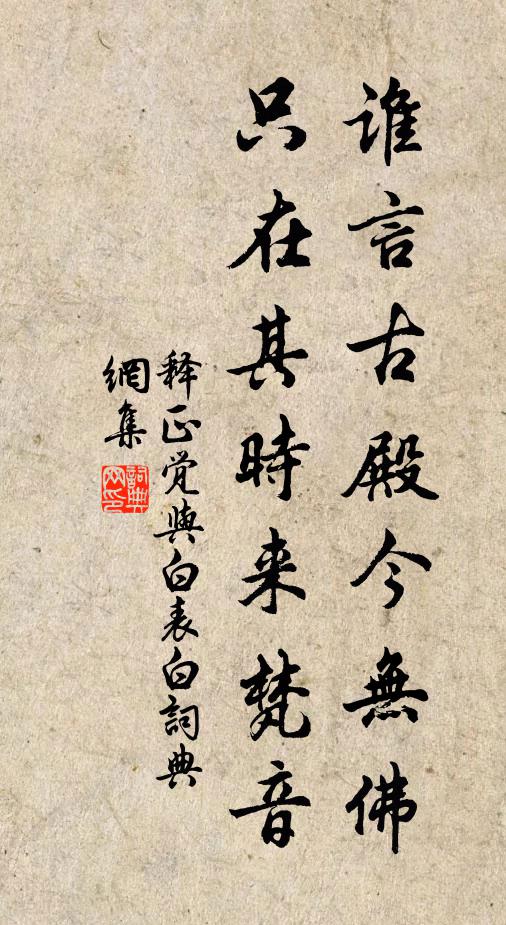 誰言古殿今無佛
只在其時来梵音
释正觉與白表白詞典
網集
詞典
网印